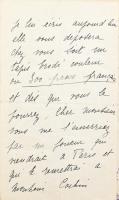 Je lui écris aujourd'hui
elle vous déposera
chez vous soit un
tapis brodé couleur
ou 300 francs français
et dès que vous le
pourrez, cher monsieur
vous me l'enverrez
par un
viendrait à Paris et
qui le remettrait à
Monsieur